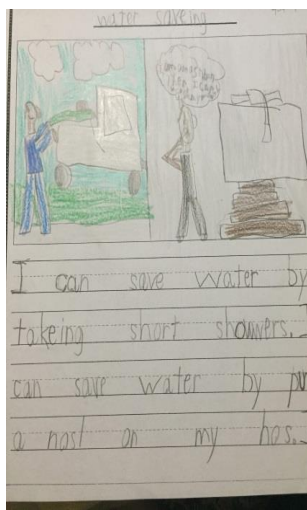 water saveing
I can save water by
takeing short showers.
can save water by pu
a nosl on my hos.